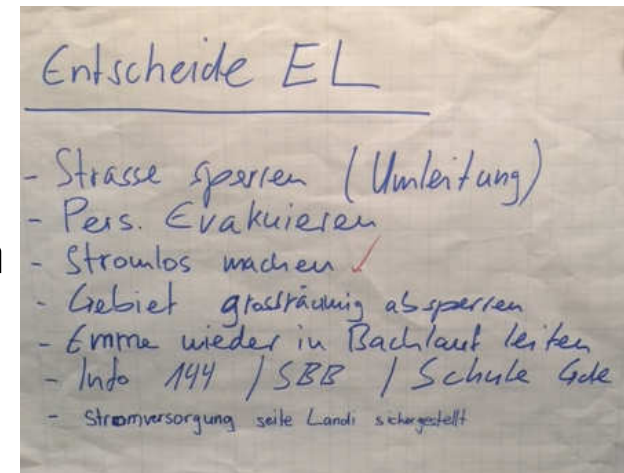 Entscheide EL
- Strasse sperren (Umleitung)
- Pers. Evakuieren
- Stromlos machen ✓
- Gebiet grossräumig absperren
- Emme wieder in Bachlauf leiten
- Info 144 / SBB / Schule Gde
- Stromversorgung seite Landi sichergestellt